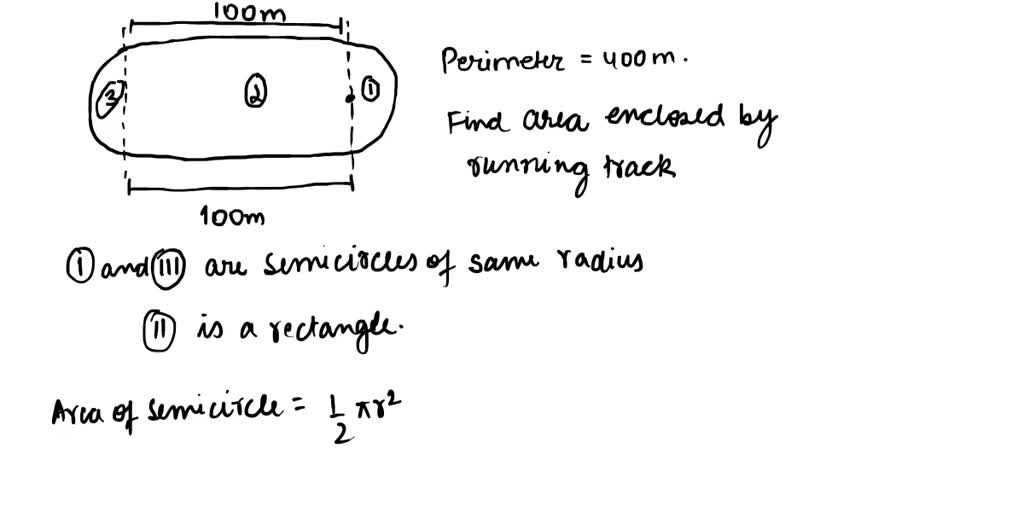 100m
③ ② ①
100m
Perimeter = 400m.
Find area enclosed by
running track
Ⓘ and Ⓘⓘⓘ are semicircles of same radius
Ⓘⓘ is a rectangle.
Area of semicircle = 1/2 πr²